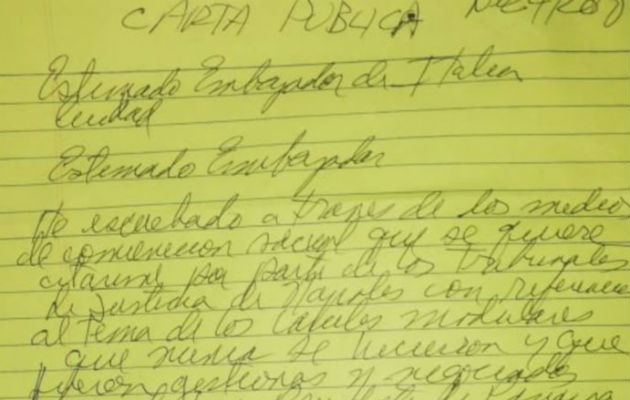 CARTA PUBLICA
Estimado Embajador de Italia
Ciudad
Estimado Embajador
He escuchado a traves de los medios
de comunicacion social que se quiere
citarme por parte de los tribunales
de Justicia de Napoles con referencia
al tema de las Carceles modulares
que nunca se hicieron y que
fueron gestionas y negociadas